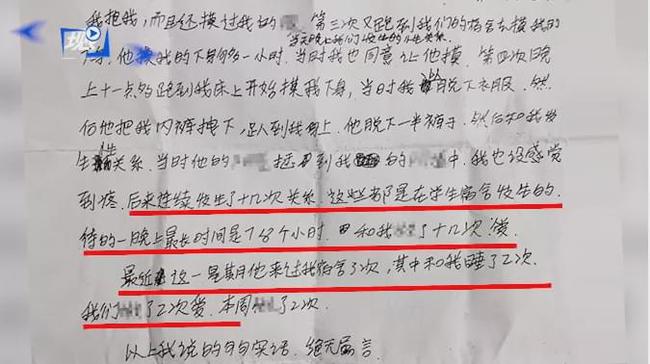 现
我抱我，而且还摸过我的 第三次又跑到我们的宿舍去摸我的
他摸我的下身多一小时，当时我也同意让他摸，第四次晚
上十一点多跑到我床上开始摸我下身，当时我 脱下衣服，然
后他把我内裤拽下，趴到我身上，他脱下一半裤子，然后和我发
生性关系，当时他的 到我 的 中，我也没感觉
到疼，后来连续发生了十几次关系，这些都是在学生宿舍发生的，
待的一晚上最长时间是7 8个小时， 和我 了十几次爱，
最近这一星期他来过我宿舍了2次，其中和我睡了2次，
我们 了2次爱，本周 了2次
以上我说的句句实话，绝无虚言